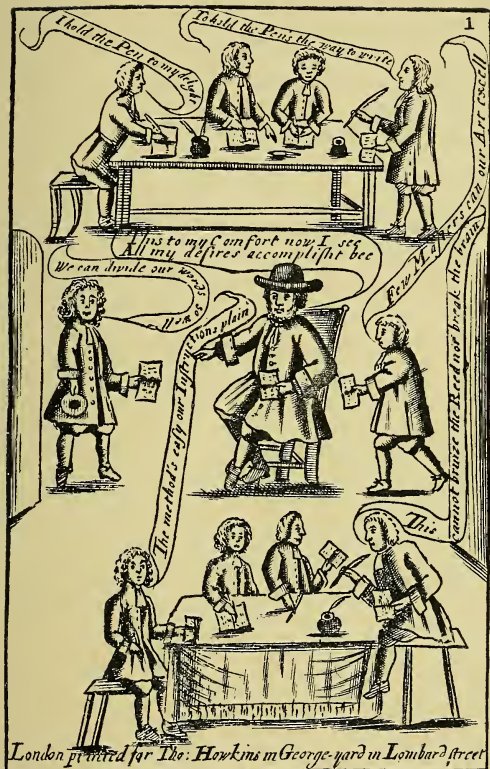 1
I hold the Pen to my delight
To hold the Pens the way to write
Thus to my Comfort now I see
All my desires accomplisht bee
We can divide our words
so well
Few Masters can our Art excell
The method's easy our Instructions plain
This
cannot bruize the Reed nor break the brain
London printed for Tho: Howkins in George-yard in Lombard street